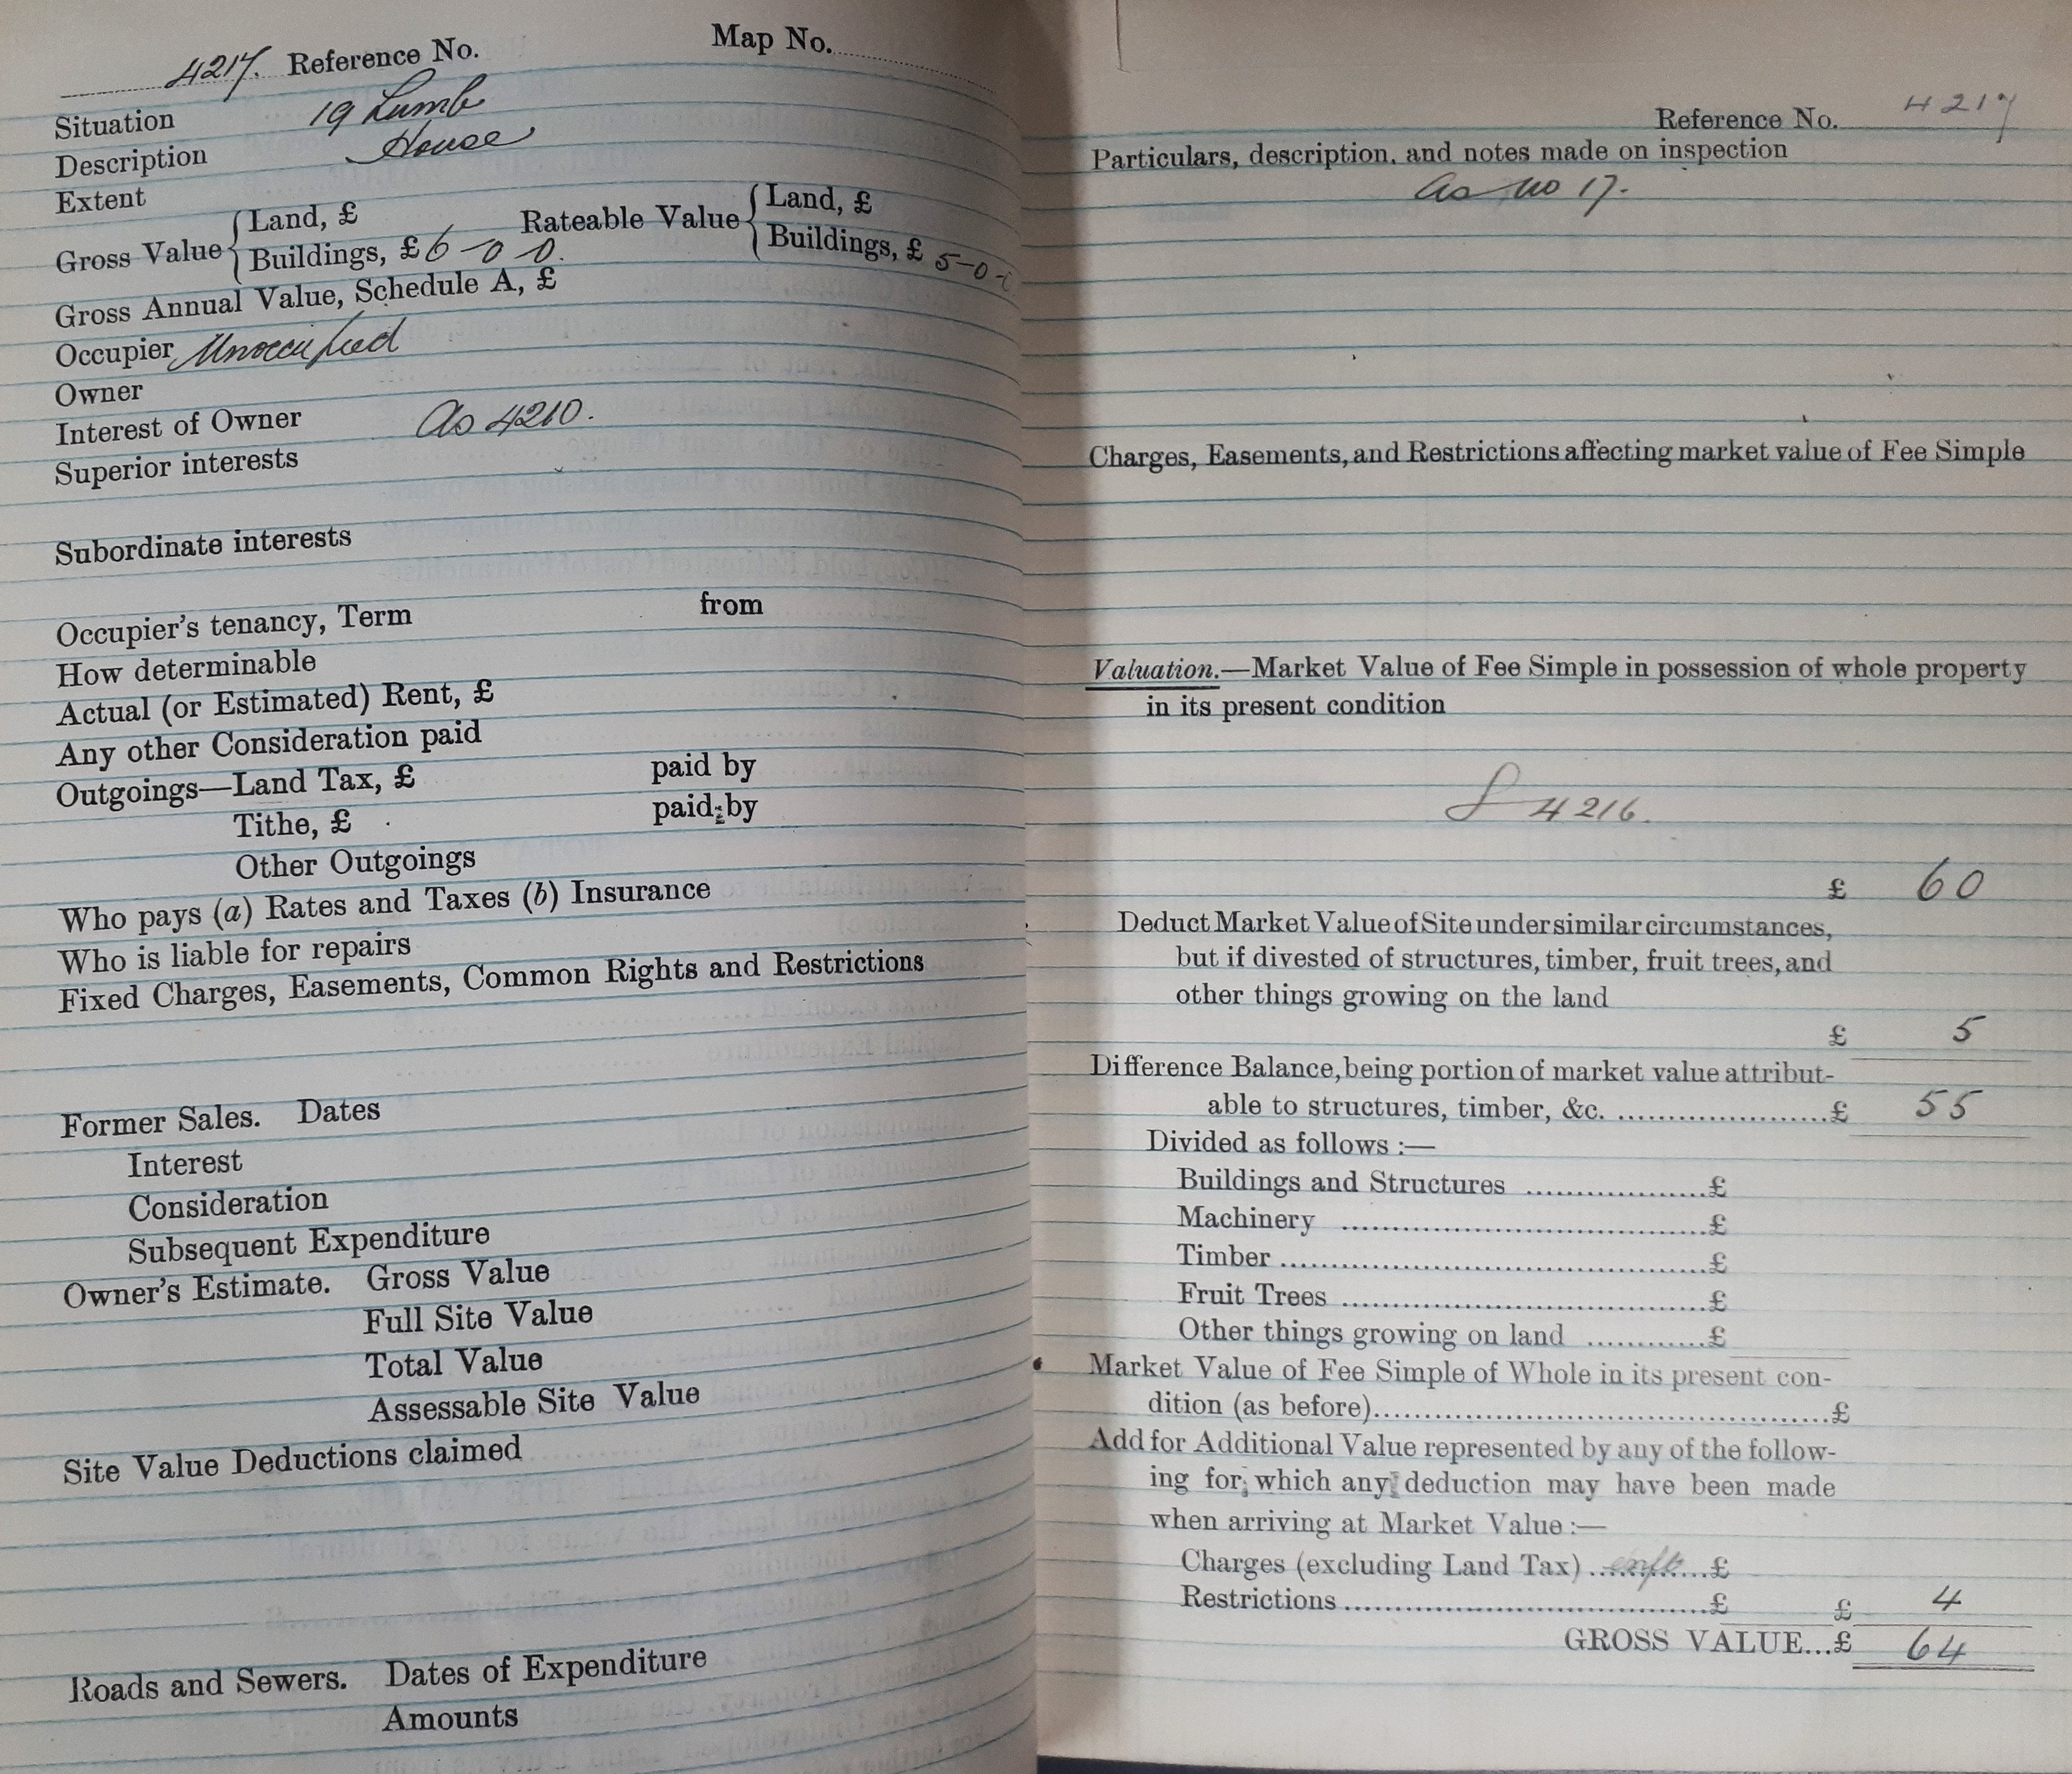 4217. Reference No. Map No.
Situation 19 Lumb
Description House
Extent
Gross Value { Land, £ Rateable Value { Land, £
Buildings, £ 6-0-0. Buildings, £ 5-0-0
Gross Annual Value, Schedule A, £
Occupier Unoccupied
Owner
Interest of Owner As 4210.
Superior interests
Subordinate interests
Occupier's tenancy, Term from
How determinable
Actual (or Estimated) Rent, £
Any other Consideration paid
Outgoings—Land Tax, £ paid by
Tithe, £ paid by
Other Outgoings
Who pays (a) Rates and Taxes (b) Insurance
Who is liable for repairs
Fixed Charges, Easements, Common Rights and Restrictions
Former Sales. Dates
Interest
Consideration
Subsequent Expenditure
Owner's Estimate. Gross Value
Full Site Value
Total Value
Assessable Site Value
Site Value Deductions claimed
Roads and Sewers. Dates of Expenditure
Amounts
Reference No. 4217
Particulars, description, and notes made on inspection
as no 17.
Charges, Easements, and Restrictions affecting market value of Fee Simple
Valuation.—Market Value of Fee Simple in possession of whole property
in its present condition
4216.
£ 60
Deduct Market Value of Site under similar circumstances,
but if divested of structures, timber, fruit trees, and
other things growing on the land
£ 5
Difference Balance, being portion of market value attribut-
able to structures, timber, &c. ....................£ 55
Divided as follows :—
Buildings and Structures .................£
Machinery ..................................£
Timber ........................................£
Fruit Trees ..................................£
Other things growing on land ............£
Market Value of Fee Simple of Whole in its present con-
dition (as before)..........................................£
Add for Additional Value represented by any of the follow-
ing for which any deduction may have been made
when arriving at Market Value :—
Charges (excluding Land Tax) ............£
Restrictions ....................................£ £ 4
GROSS VALUE...£ 64